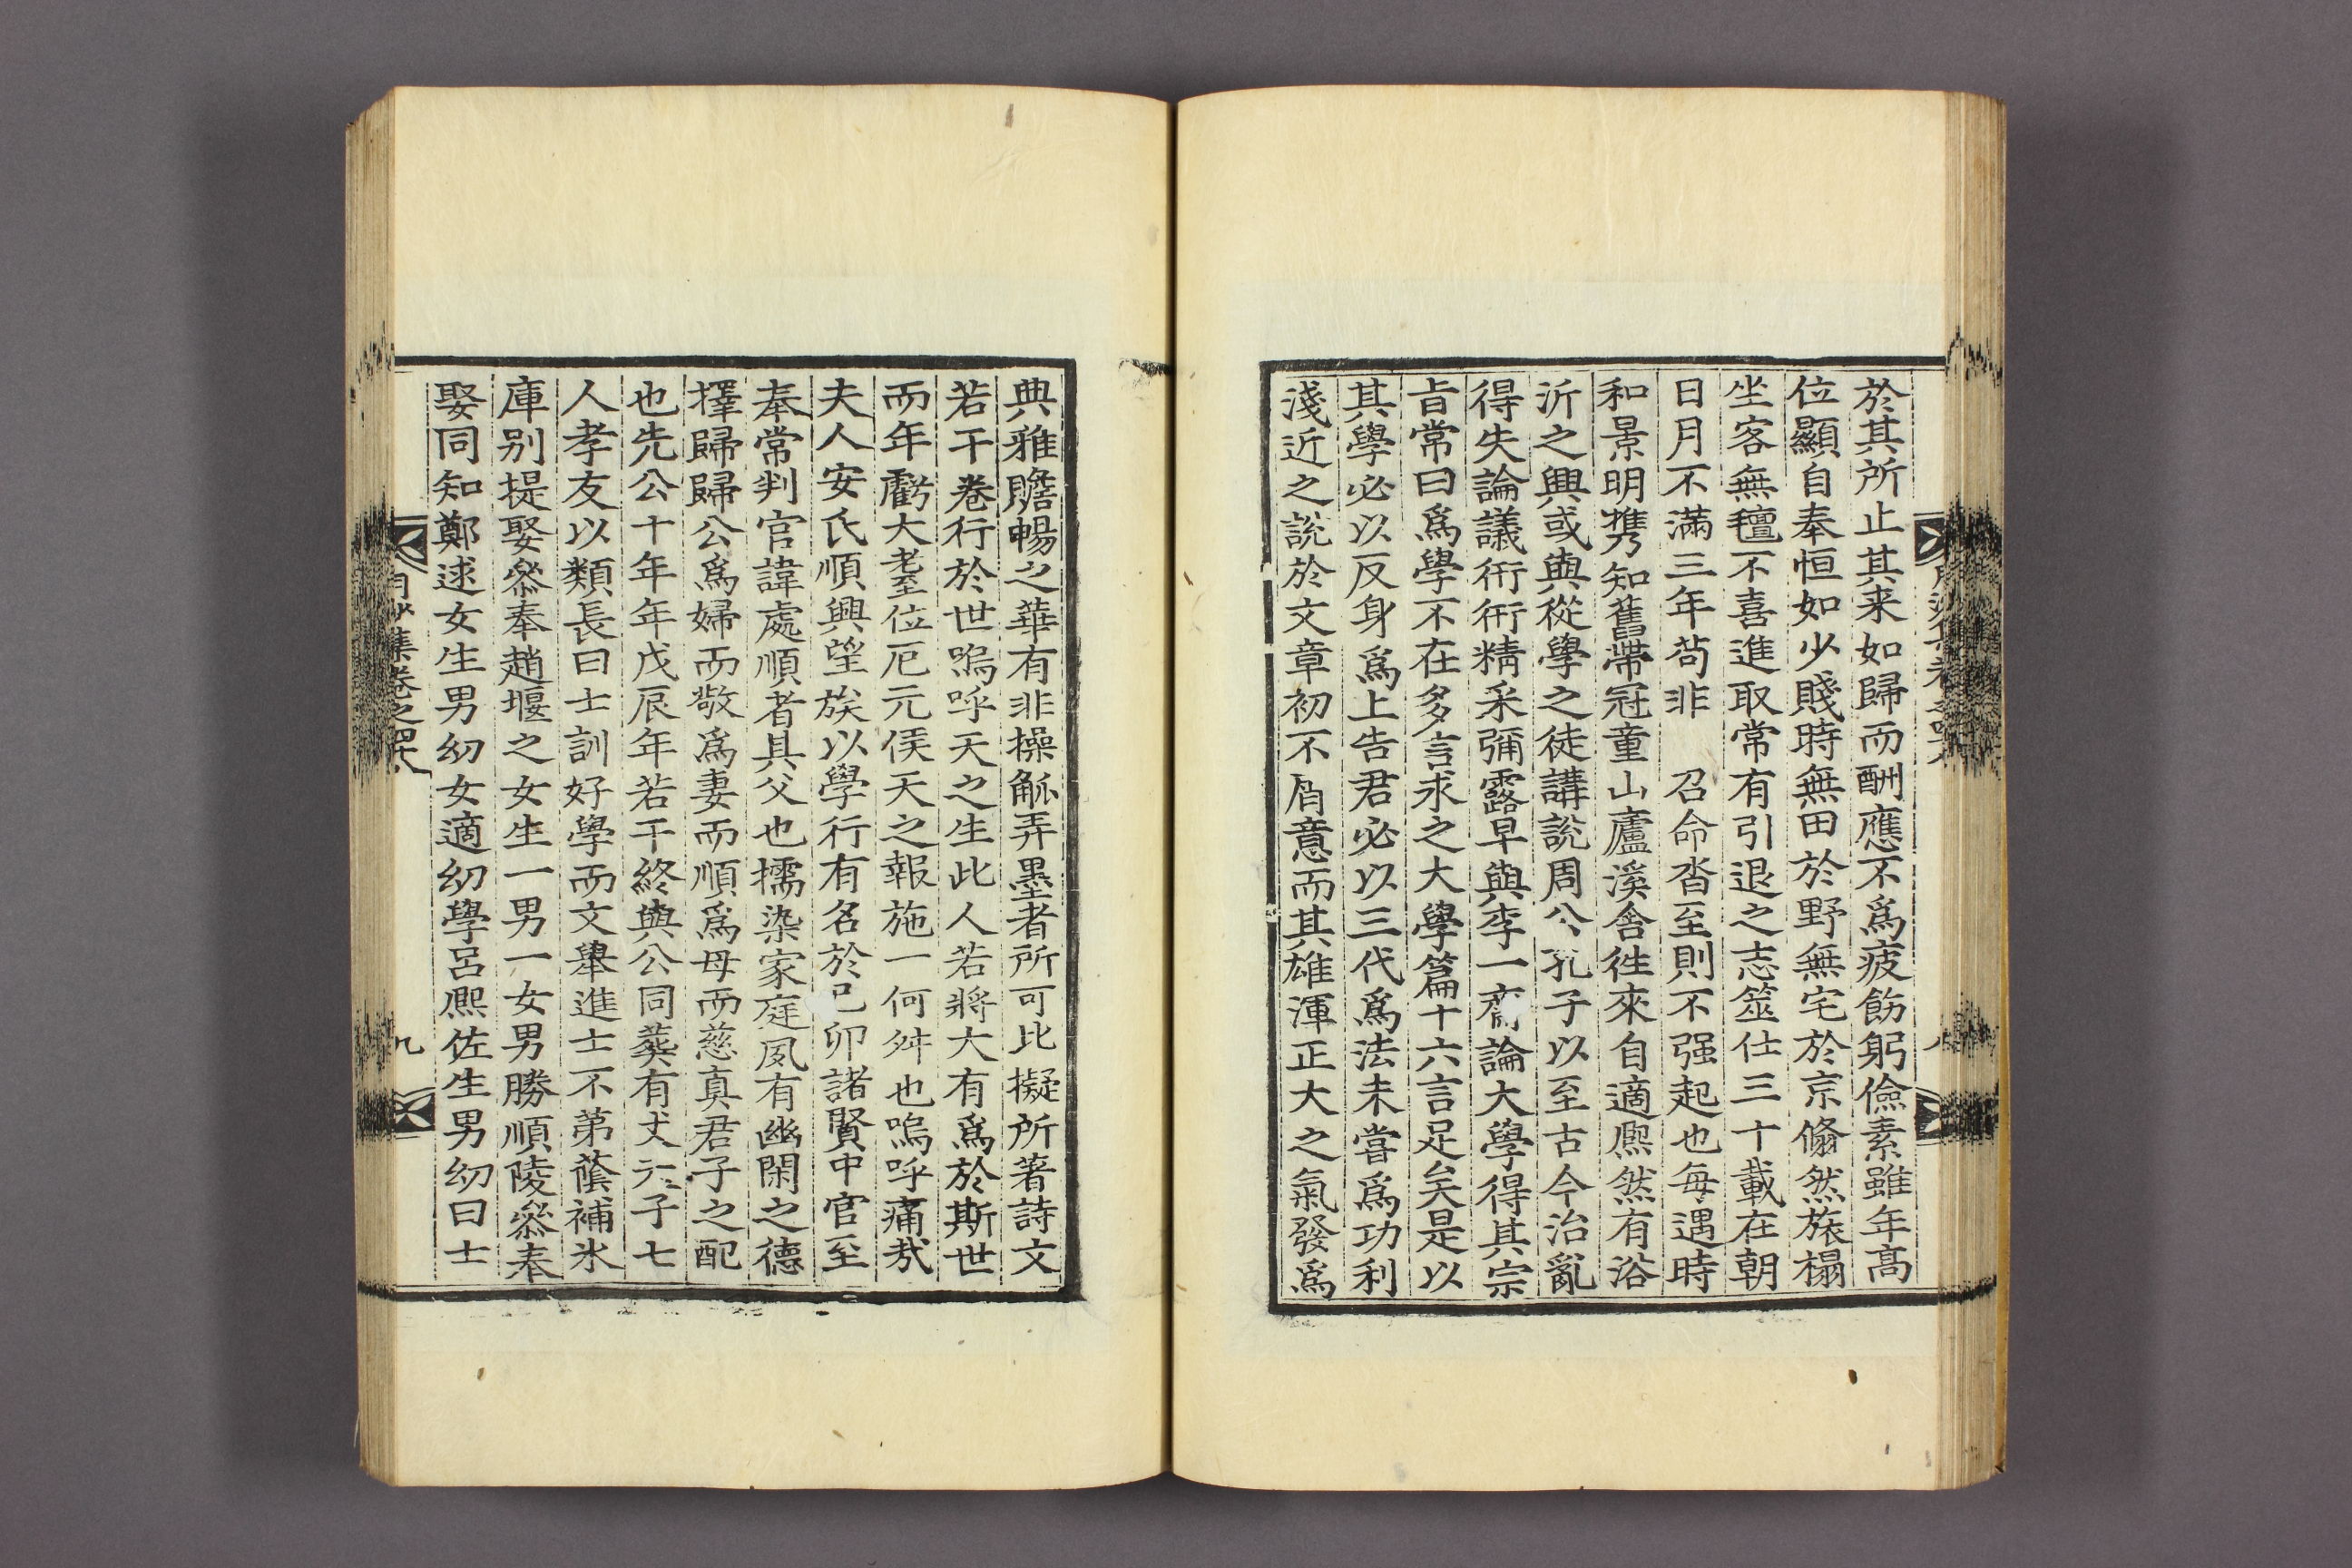 於其所止其来如歸而酬應不爲疲飭躬儉素雖年高
位顯自奉恒如少賤時無田於野無宅於京翛然旅榻
坐客無氊不喜進取常有引退之志筮仕三十載在朝
日月不滿三年苟非召命沓至則不强起也每遇時
和景明携知舊帶冠童山廬溪舍徃來自適熈然有浴
沂之興或與從學之徒講說周公孔子以至古今治亂
得失論議衎衎精采彌露早與李一齋論大學得其宗
旨常曰爲學不在多言求之大學篇十六言足矣是以
其學必以反身爲上告君必以三代爲法未嘗爲功利
淺近之說於文章初不屑意而其雄渾正大之氣發爲
八
典雅贍暢之華有非操觚弄墨者所可比擬所著詩文
若干卷行於世嗚呼天之生此人若將大有爲於斯世
而年虧大耋位厄元侯天之報施一何舛也嗚呼痛哉
夫人安氏順興望族以學行有名於己卯諸賢中官至
奉常判官諱處順者其父也擩染家庭夙有幽閑之德
擇歸歸公爲婦而敬爲妻而順爲母而慈真君子之配
也先公十年年戊辰年若干終與公同葬有丈六子七
人孝友以類長曰士訓好學而文舉進士不第蔭補氷
庫别提娶叅奉趙堰之女生一男一女男勝順陵叅奉
娶同知鄭逑女生男幼女適幼學呂熈佐生男幼曰士
月沙集卷之四十八
九